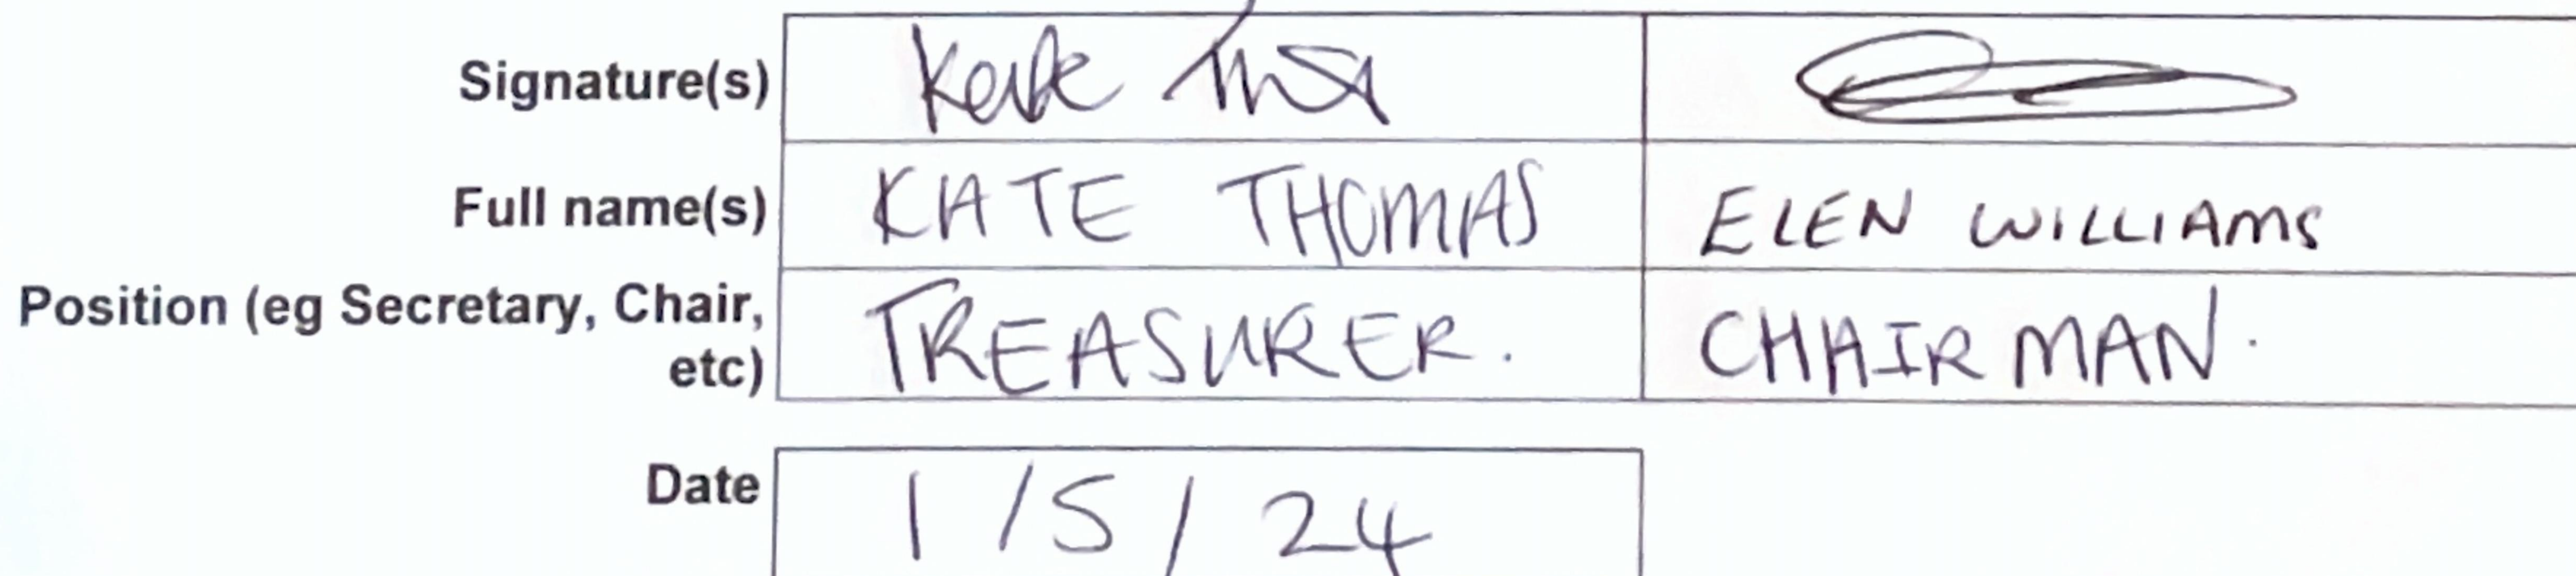 Signature(s) Kate
Full name(s) KATE THOMAS ELEN WILLIAMS
Position (eg Secretary, Chair, etc) TREASURER. CHAIRMAN.
Date 1/5/24